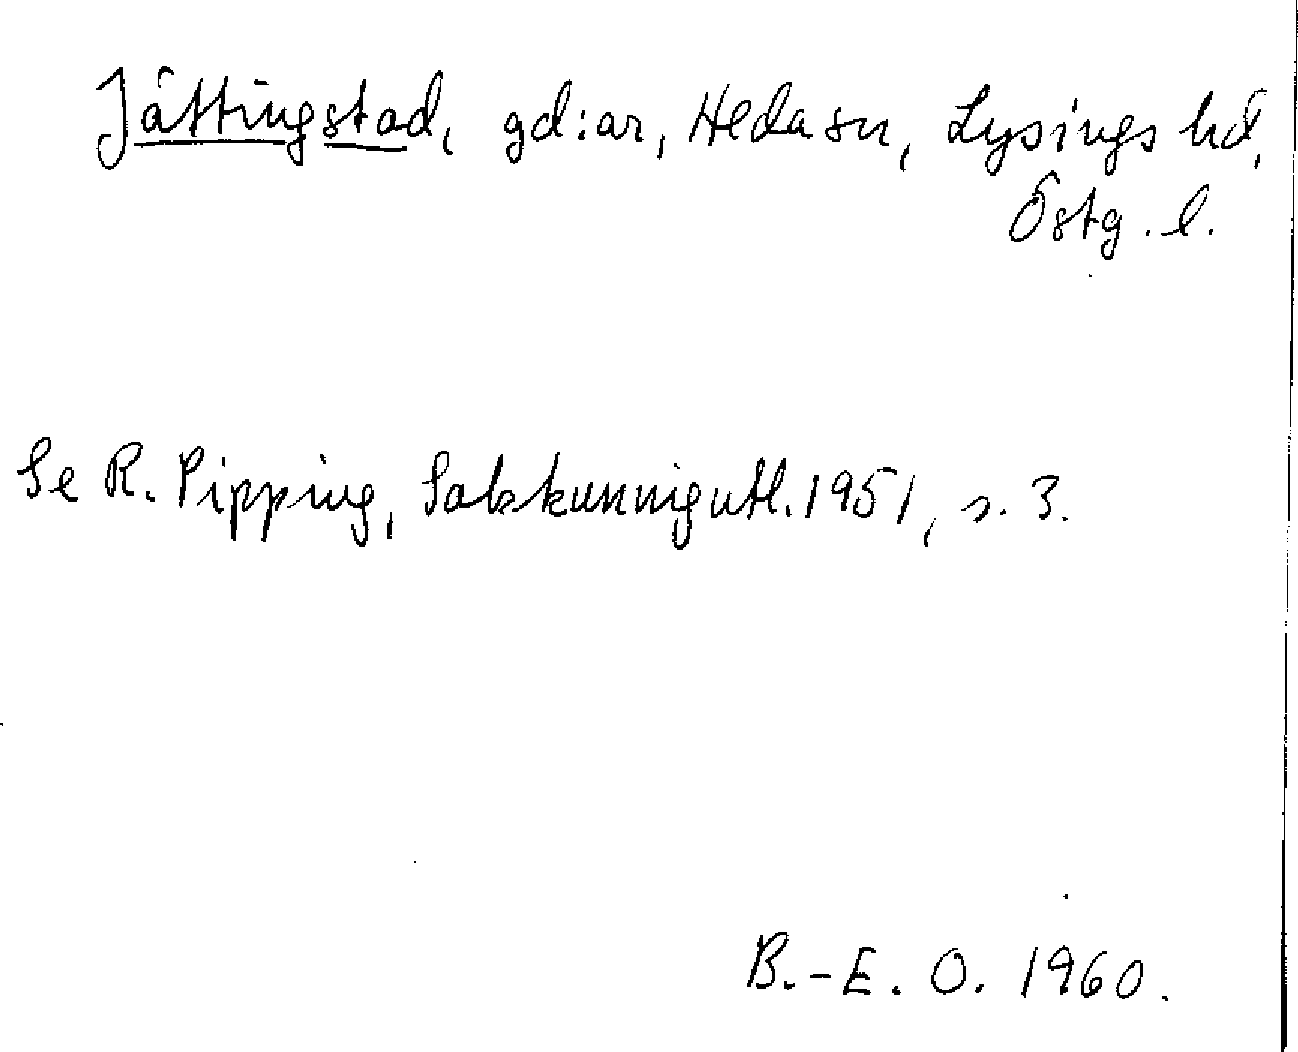 Jättingstad, gd:ar, Heda sn, Lysings hd,
Östg. l.
Se R. Pipping, Sakkunnigutl. 1951, s. 3.
B.-E. O. 1960.